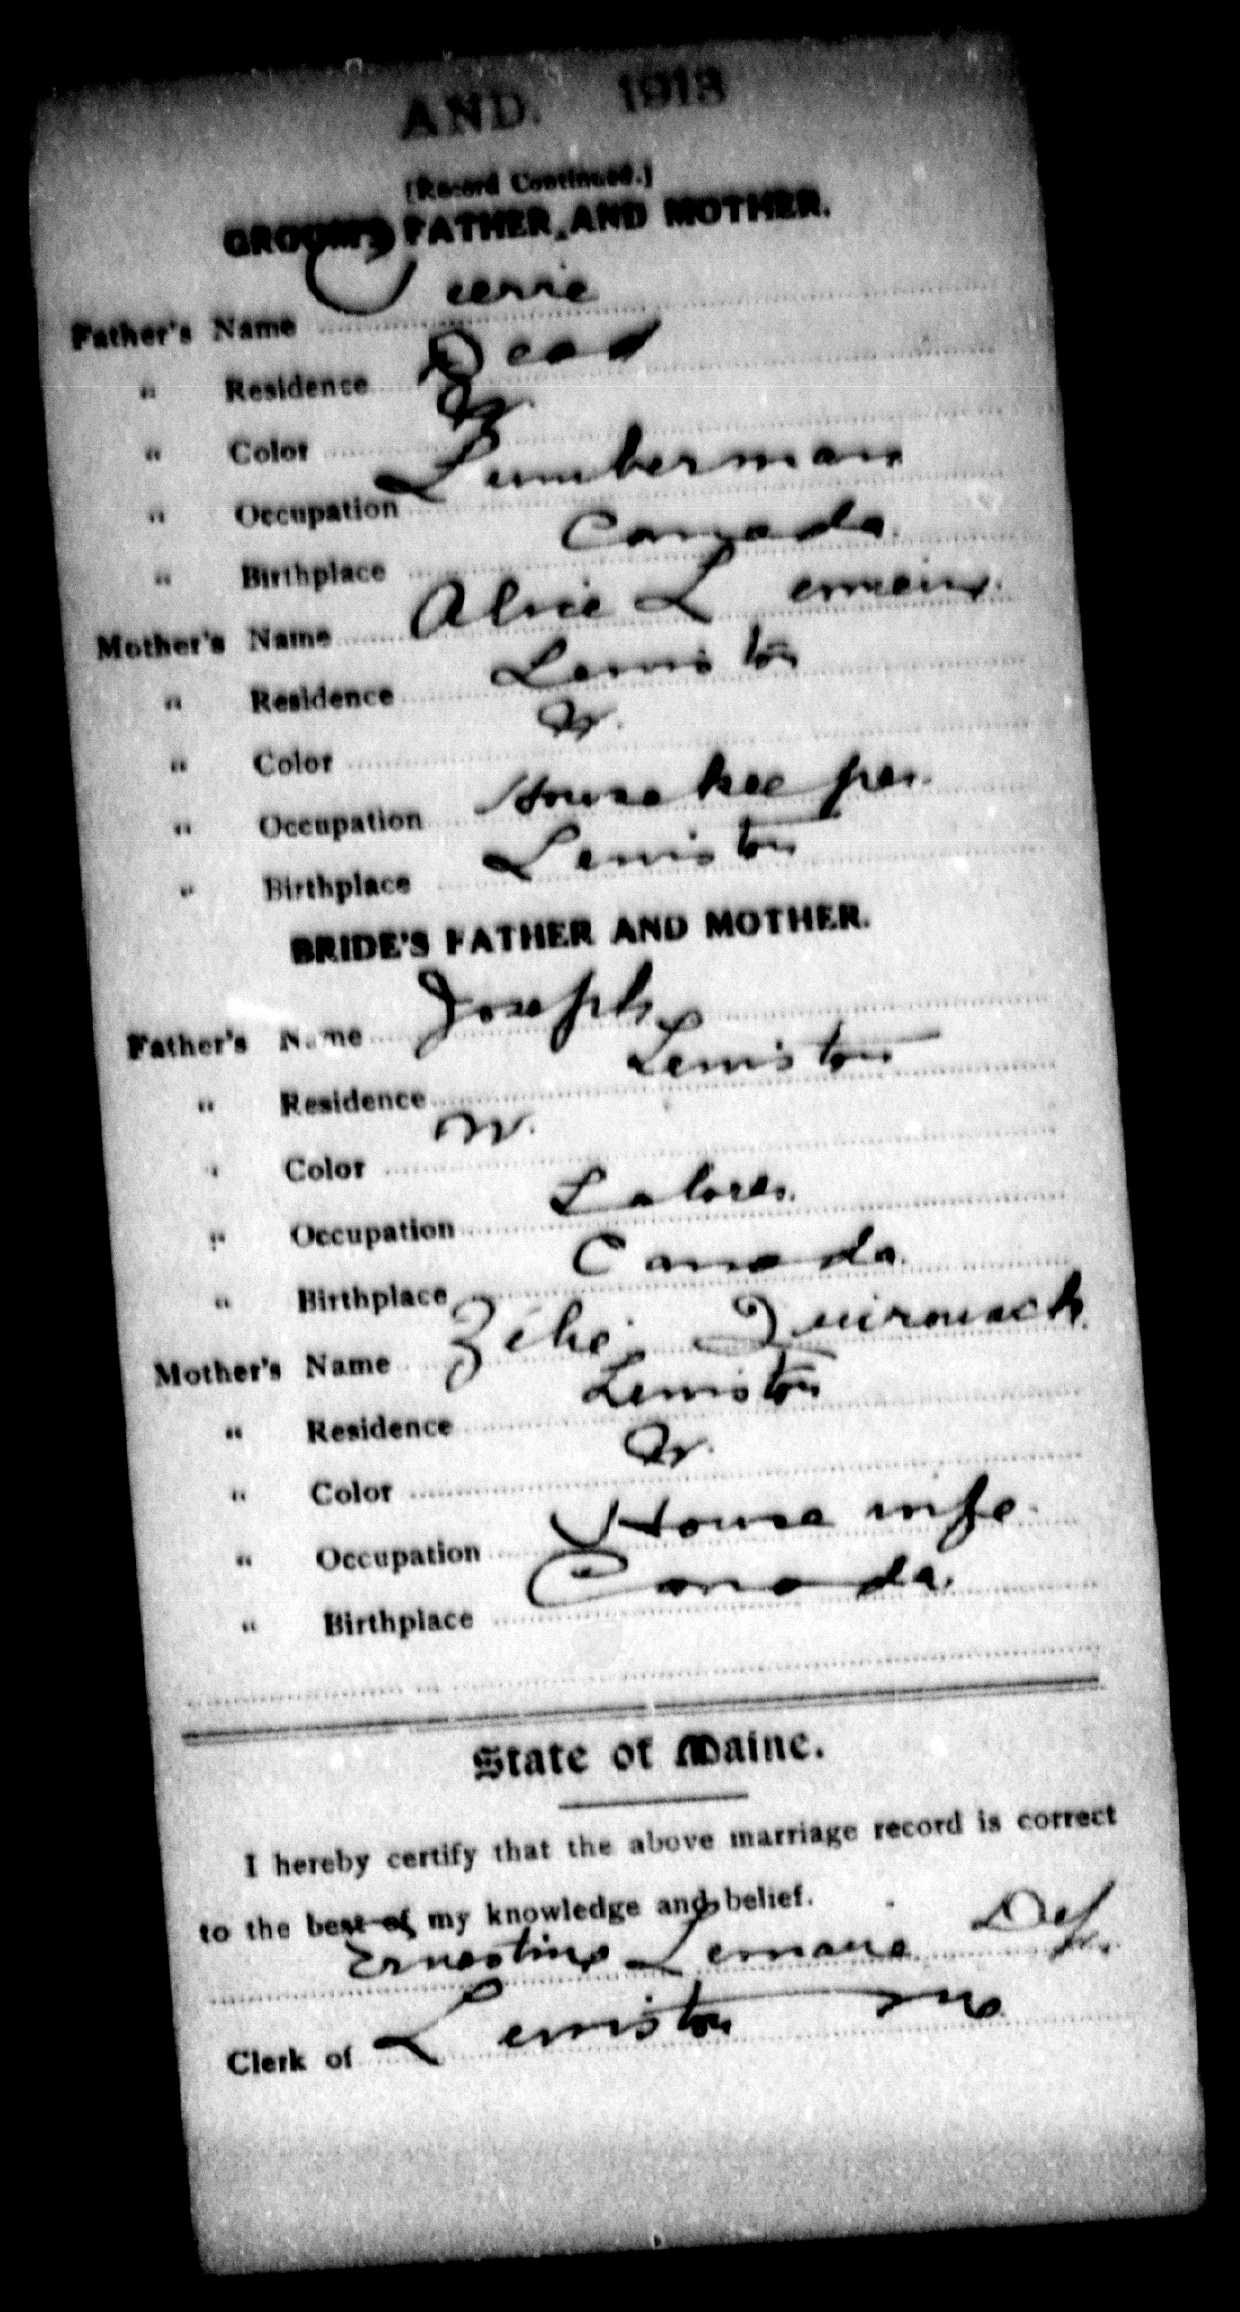 AND. 1913
[Record Continued.]
GROOM'S FATHER AND MOTHER.
Father's Name
" Residence Dead
" Color W.
" Occupation Lumberman
" Birthplace Canada.
Mother's Name Alice
" Residence Lewiston
" Color W.
" Occupation Housekeeper.
" Birthplace Lewiston
BRIDE'S FATHER AND MOTHER.
Father's Name Joseph
" Residence Lewiston
" Color W.
" Occupation Laborer.
" Birthplace Canada.
Mother's Name
" Residence Lewiston
" Color W.
" Occupation House wife.
" Birthplace Canada.
State of Maine.
I hereby certify that the above marriage record is correct
to the best of my knowledge and belief.
Ernestine Dep.
Clerk of Lewiston Me